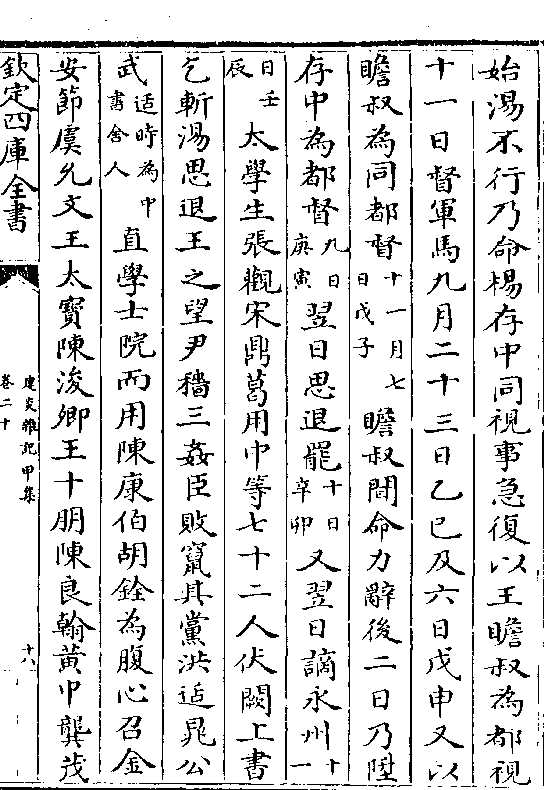 始湯不行乃命楊存中同視事急復以王瞻叔為都視
十一日督軍馬九月二十三日乙巳及六日戊申又以
瞻叔為同都督十一月七日戊子瞻叔聞命力辭後二日乃陞
存中為都督九日庚寅翌日思退罷十日辛卯又翌日謫永州十一
日壬辰太學生張觀宋鼎葛用中等七十二人伏闕上書
乞斬湯思退王之望尹穡三姦臣敗竄其黨洪适晁公
武适時為中書舍人直學士院而用陳康伯胡銓為腹心召金
安節虞允文王大寶陳浚卿王十朋陳良翰黃中龔茂
欽定四庫全書
建炎雜記甲集
卷二十
十八